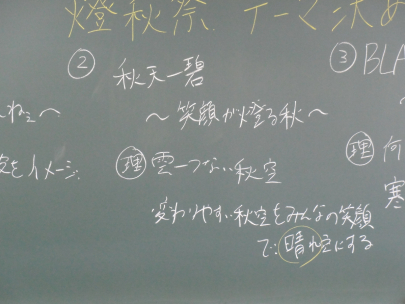 燈秋祭 テーマ決め
② 秋天一碧
～笑顔が燈る秋～
理 雲一つない秋空
変わりやすい秋空をみんなの笑顔
で晴れ空にする
をイメージ
③ BLA
理 何
寒